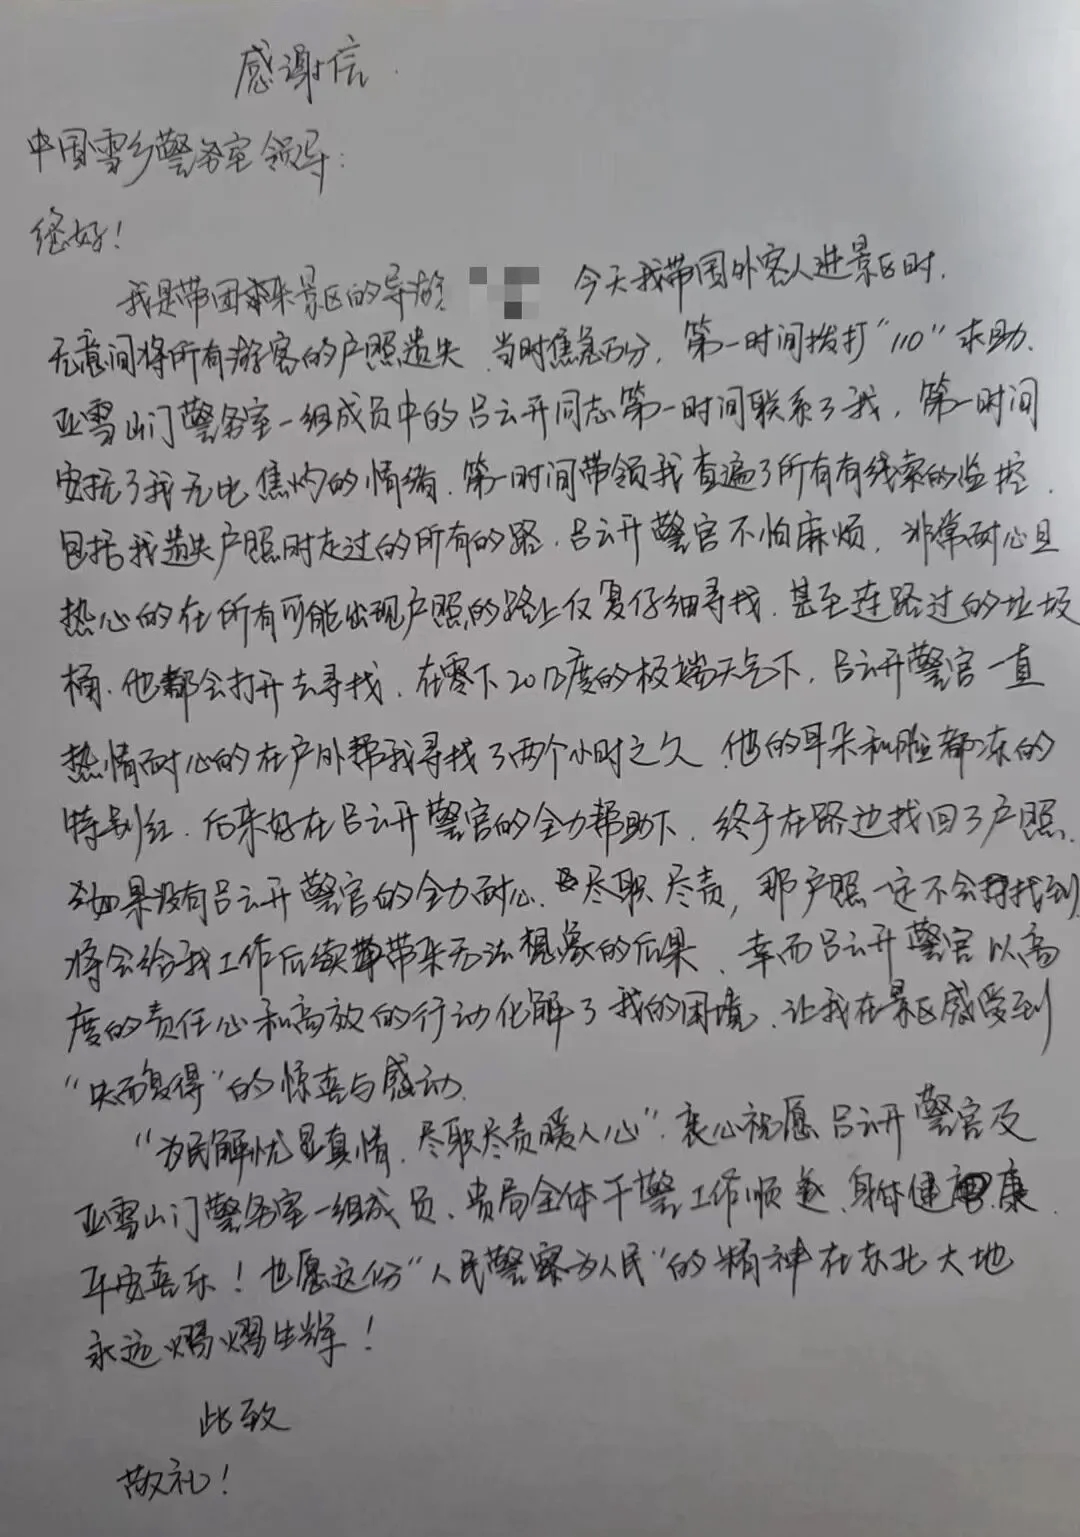 感谢信.
中国雪乡警务室领导:
您好!
我是带团来景区的导游 今天我带国外客人进景区时,
无意间将所有游客的户照遗失.当时焦急万分,第一时间拨打“110”求助.
亚雪山门警务室一组成员中的吕云开同志第一时间联系了我,第一时间
安抚了我无比焦灼的情绪.第一时间带领我查遍了所有有线索的监控.
包括我遗失户照时走过的所有的路.吕云开警官不怕麻烦,非常耐心且
热心的在所有可能出现户照的路上反复仔细寻找.甚至连路过的垃圾
桶.他都会打开去寻找.在零下20几度的极端天气下,吕云开警官一直
热情耐心的在户外帮我寻找了两个小时之久.他的耳朵和脸都冻的
特别红.后来好在吕云开警官的全力帮助下,终于在路边找回了户照.
如果没有吕云开警官的全力耐心.尽职尽责,那户照一定不会找到,
将会给我工作后续带来无法想象的后果.幸而吕云开警官以高
度的责任心和高效的行动化解了我的困境.让我在景区感受到
“失而复得”的惊喜与感动.
“为民解忧显真情.尽职尽责暖人心”.衷心祝愿吕云开警官及
亚雪山门警务室一组成员、贵局全体干警工作顺遂.身体健康.
平安喜乐!也愿这份“人民警察为人民”的精神在东北大地
永远熠熠生辉!
此致
敬礼!